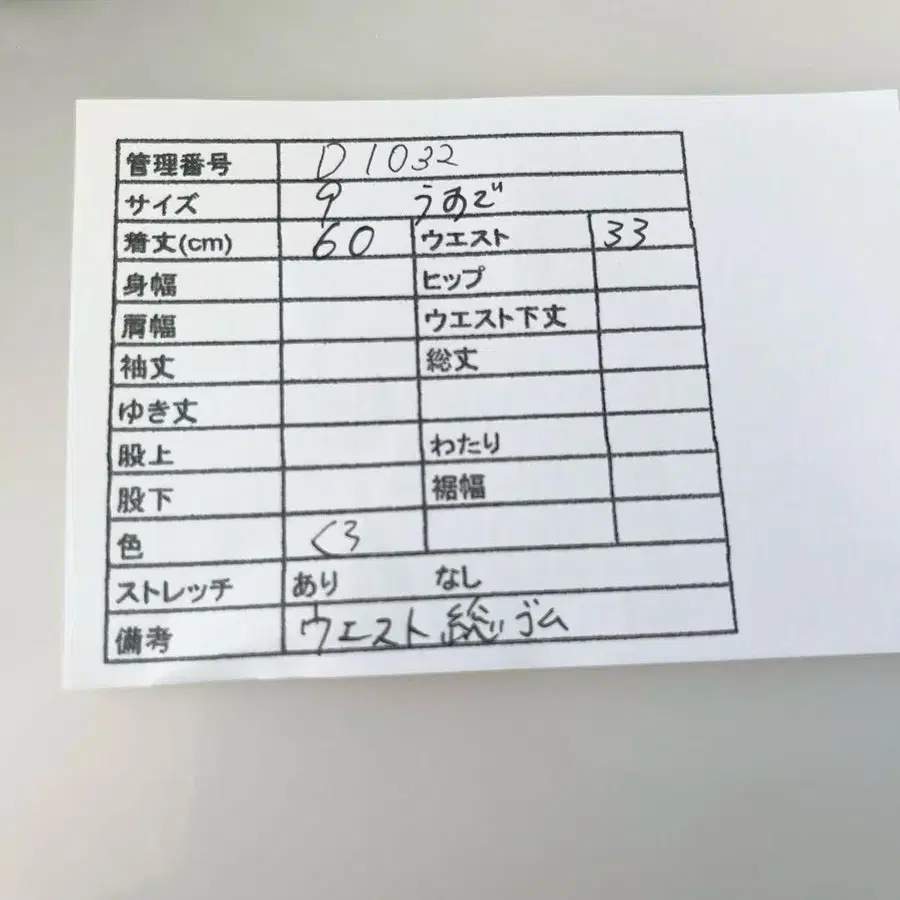 管理番号 D1032
サイズ 9 うすで
着丈(cm) 60 ウエスト 33
身幅 ヒップ
肩幅 ウエスト下丈
袖丈 総丈
ゆき丈
股上 わたり
股下 裾幅
色 くろ
ストレッチ あり なし
備考 ウエスト総ゴム